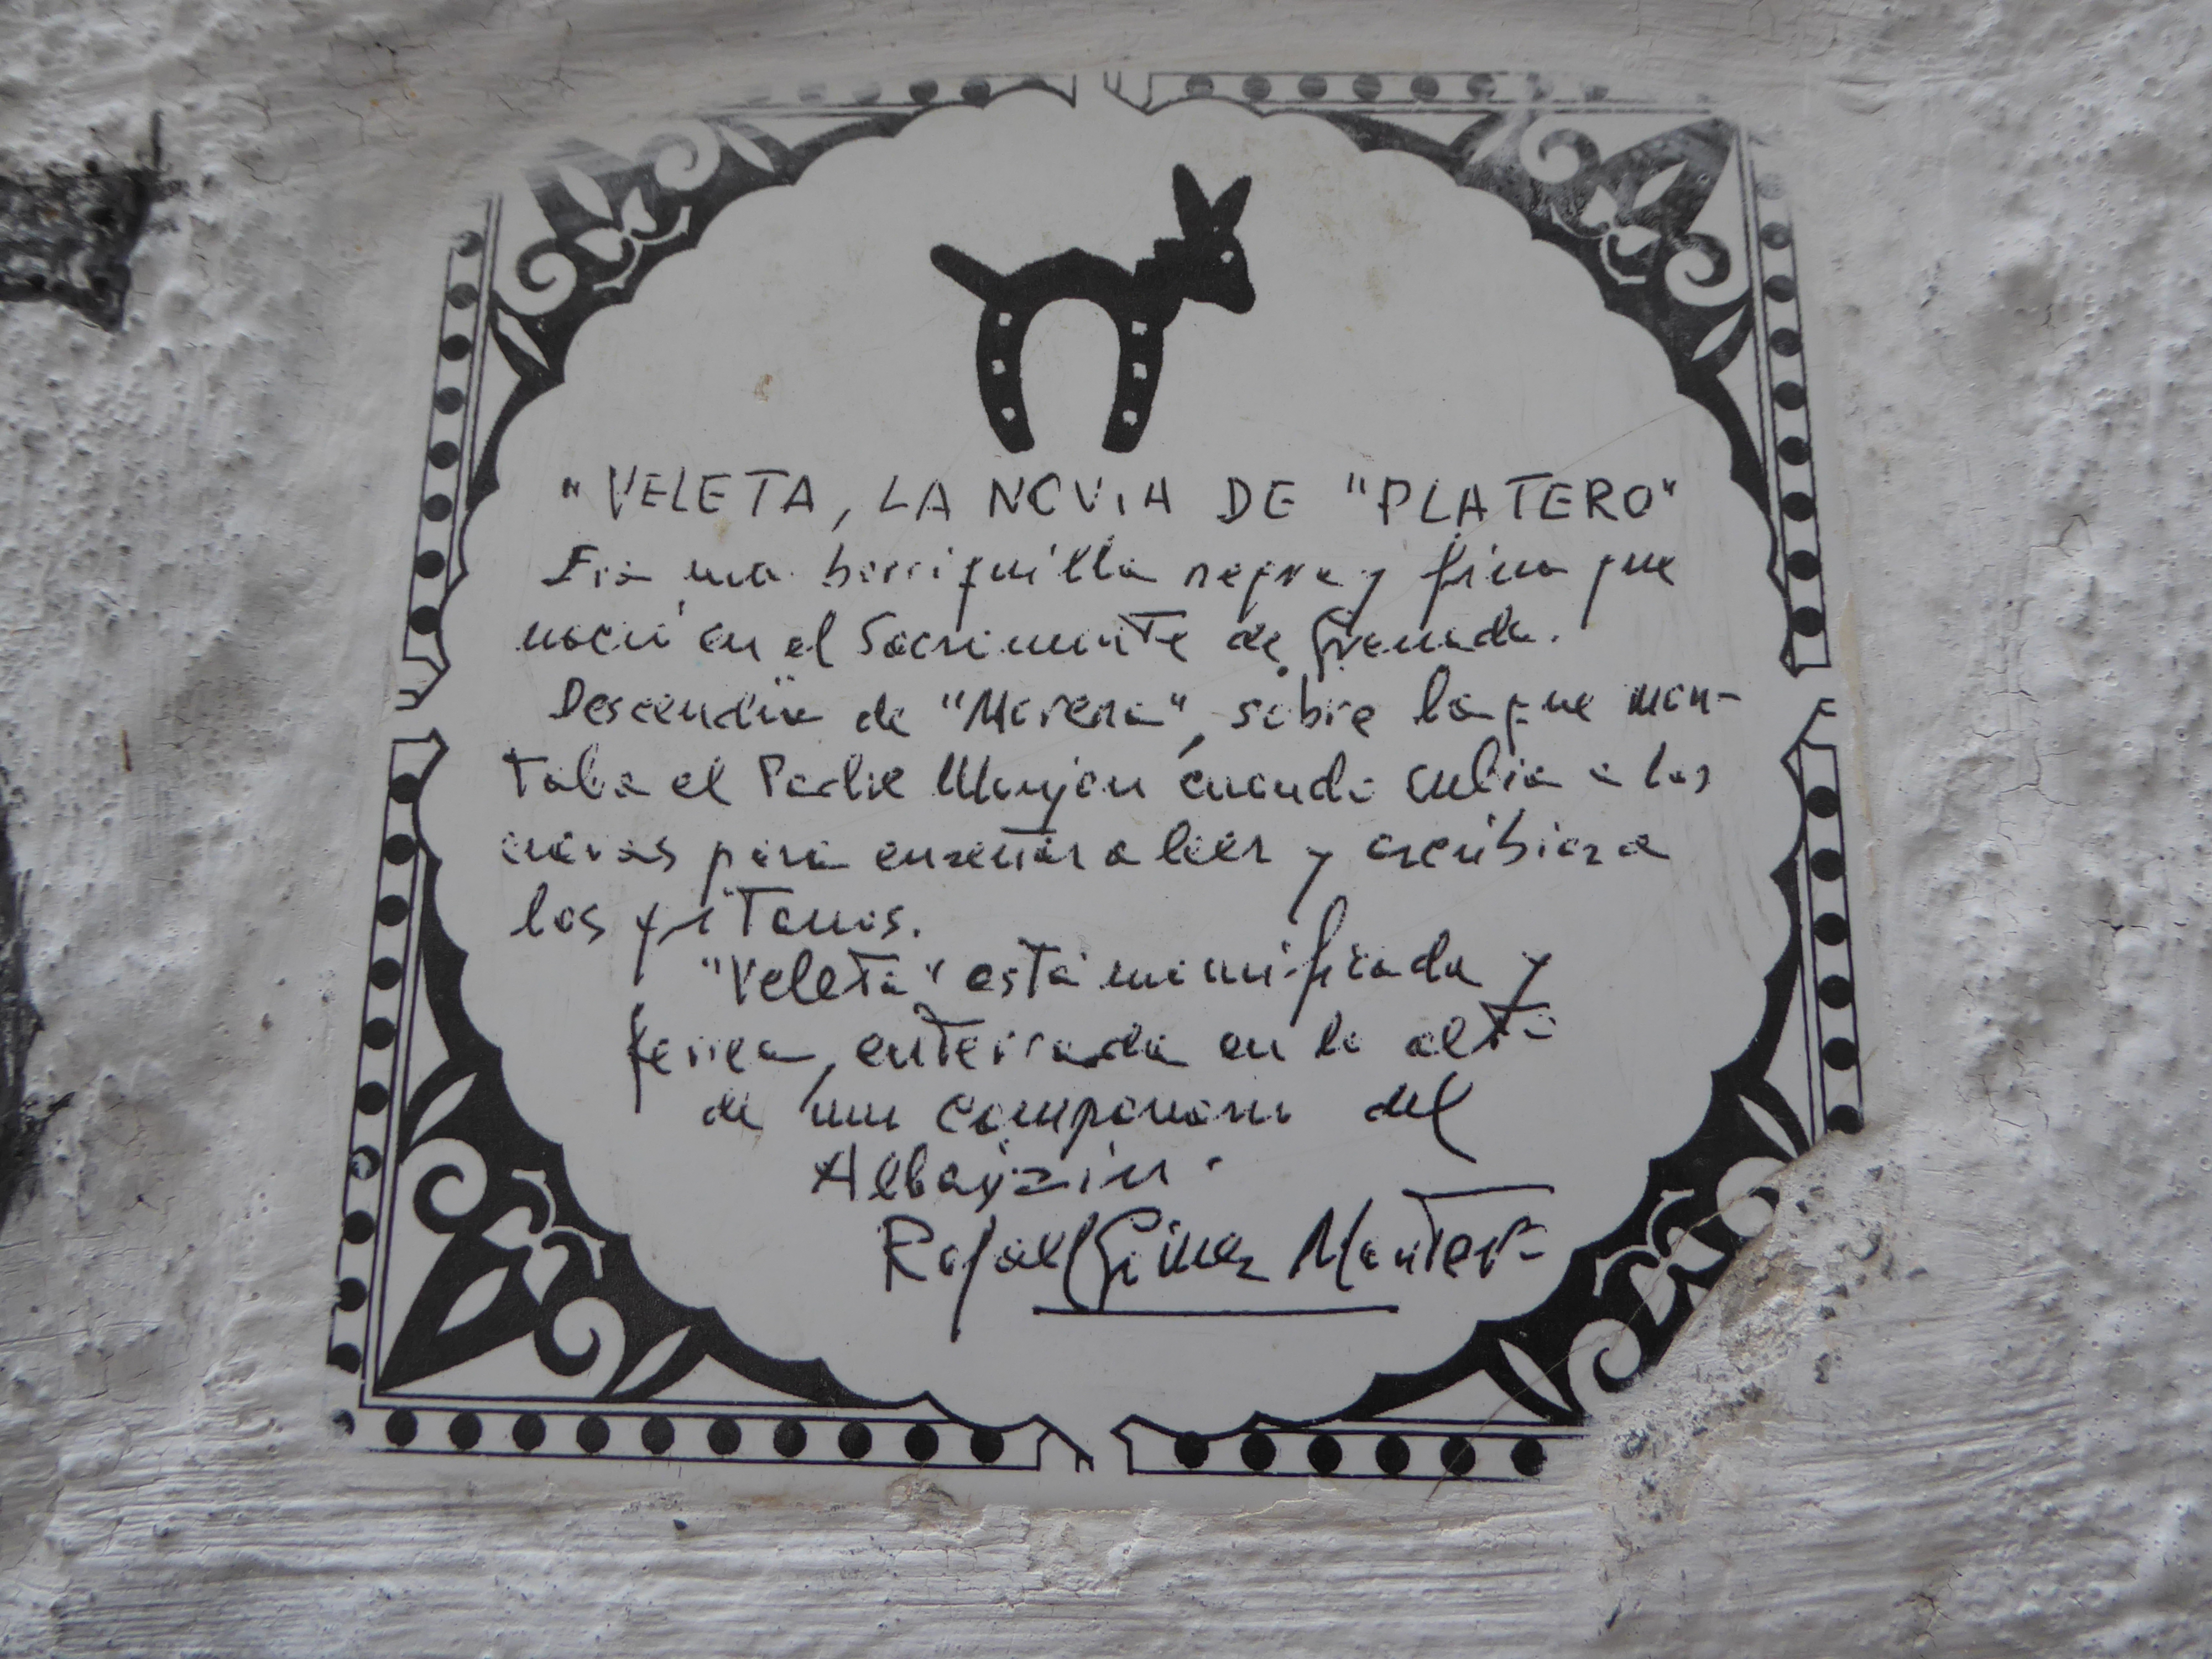 "VELETA, LA NOVIA DE "PLATERO"
Era una borriquilla negra y fina que
nació en el Sacrimonte de Granada.
Descendía de "Morena", sobre la que mon-
taba el Padre Manjón cuando subía a las
cuevas para enseñar a leer y escribir a
los gitanos.
"Veleta" está mimificada y
ferrea, enterrada en lo alto
de un campanario del
Albayzín.
Rafael Gómez Montero